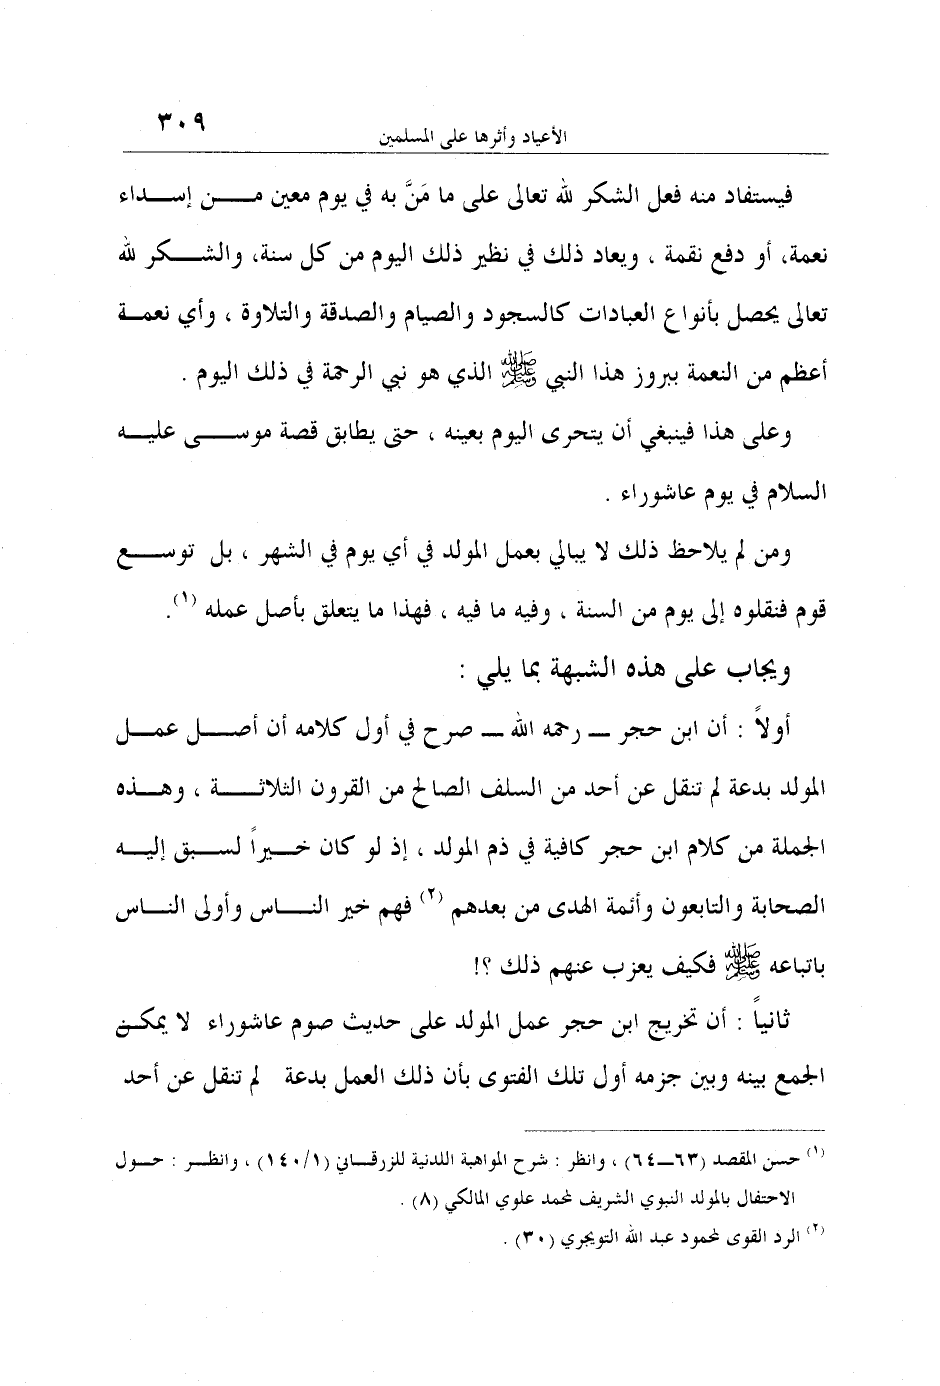 الأعياد وأثرها على المسلمين ٣٠٩
فيستفاد منه فعل الشكر لله تعالى على ما مَنَّ به في يوم معين من إسداء
نعمة، أو دفع نقمة ، ويعاد ذلك في نظير ذلك اليوم من كل سنة، والشكر لله
تعالى يحصل بأنواع العبادات كالسجود والصيام والصدقة والتلاوة ، وأي نعمة
أعظم من النعمة ببروز هذا النبي ﷺ الذي هو نبي الرحمة في ذلك اليوم .
وعلى هذا فينبغي أن يتحرى اليوم بعينه ، حتى يطابق قصة موسى عليه
السلام في يوم عاشوراء .
ومن لم يلاحظ ذلك لا يبالي بعمل المولد في أي يوم في الشهر ، بل توسع
قوم فنقلوه إلى يوم من السنة ، وفيه ما فيه ، فهذا ما يتعلق بأصل عمله (١).
ويجاب على هذه الشبهة بما يلي :
أولاً : أن ابن حجر – رحمه الله – صرح في أول كلامه أن أصل عمل
المولد بدعة لم تنقل عن أحد من السلف الصالح من القرون الثلاثة ، وهذه
الجملة من كلام ابن حجر كافية في ذم المولد ، إذ لو كان خيراً لسبق إليه
الصحابة والتابعون وأئمة الهدى من بعدهم (٢) فهم خير الناس وأولى الناس
باتباعه ﷺ فكيف يعزب عنهم ذلك ؟!
ثانياً : أن تخريج ابن حجر عمل المولد على حديث صوم عاشوراء لا يمكن
الجمع بينه وبين جزمه أول تلك الفتوى بأن ذلك العمل بدعة لم تنقل عن أحد
(١) حسن المقصد (٦٣–٦٤) ، وانظر : شرح المواهبة اللدنية للزرقاني (١/ ١٤٠) ، وانظر : حول
الاحتفال بالمولد النبوي الشريف لمحمد علوي المالكي (٨) .
(٢) الرد القوى لمحمود عبد الله التويجري (٣٠) .